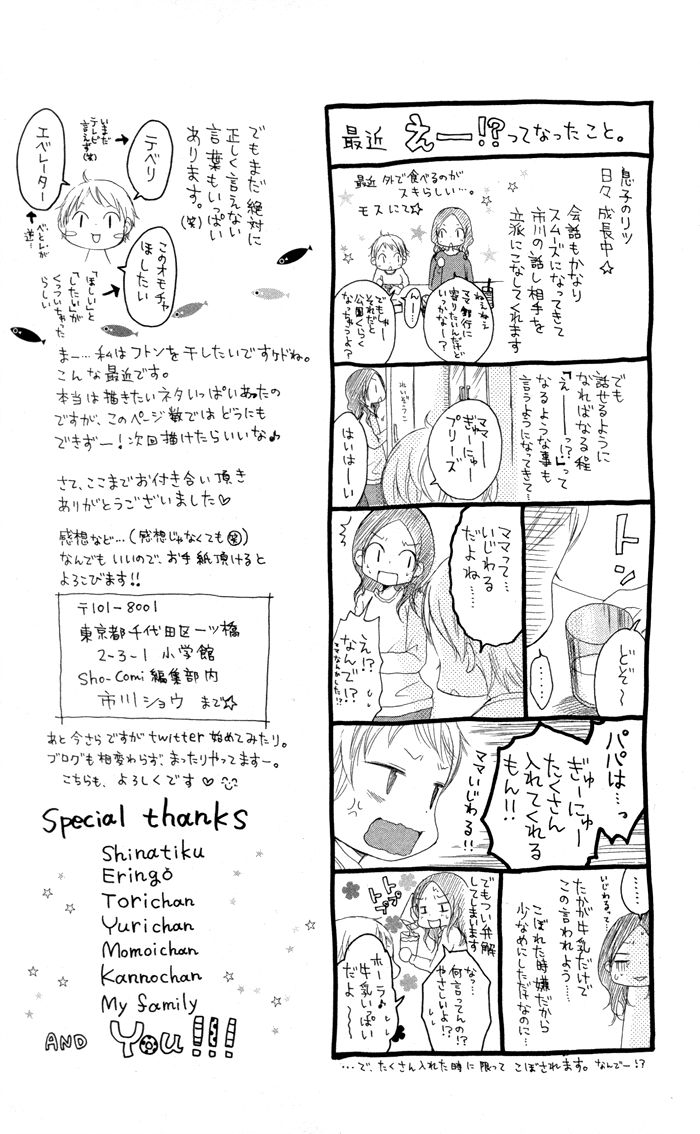 最近 えー!?ってなったこと。
息子のリツ
日々 成長中☆
会話もかなり
スムーズになってきて
市川の話し相手を
立派にこなしてくれます
最近 外で食べるのが
スキらしい…。
モスにて☆
ねぇねぇ
ママ銀行に
寄りたいんだけど
いっかなー?
んー…
でもしゃー
それだと
公園くらく
なっちゃうよ?
でも
話せるように
なればなる程
「えーーっ!?」って
なるような事も
言うようになってきて…
れいぞうこ
ママー
ぎゅーにゅー
プリーズ
はいはーい
トン
どぞ〜
……
ママって…
いじわる
だよね……
え!?
なんで!?
ママなんかした!?
パパは…っ
ぎゅーにゅー
たくさん
入れてくれる
もん!!
ママいじわる!!
……
いじわるって…
たかが牛乳だけで
この言われよう…
こぼれた時嫌だから
少なめにしただけなのに…
でもつい弁解
してしまいます
トプトプ
なっ…
何言ってんの!?
やさしいよ!?
ホーラ♪
牛乳いっぱい
だよ〜
…で、たくさん入れた時に限って こぼされます。なんでー!?
でもまだ絶対に
正しく言えない
言葉もいっぱい
あります。(笑)
テベリ
いまだ
テレビと
言えず(笑)
エベレーター
べとれが
逆…
このオモチャ
ほしたい
「ほしい」と
「したい」が
くっついちゃった
らしい
まー…私はフトンを干したいですケドね。
こんな最近です。
本当は描きたいネタいっぱいあったの
ですが、このページ数ではどうにも
できずー!次回描けたらいいな♪
さて、ここまでお付き合い頂き
ありがとうございました♡
感想など…(感想じゃなくても㊛)
なんでもいいので、お手紙頂けると
よろこびます!!
〒101-8001
東京都千代田区一ツ橋
2-3-1 小学館
Sho-Comi編集部内
市川ショウ まで☆
あと今さらですがtwitter始めてみたり。
ブログも相変わらず、まったりやってますー。
こちらも、よろしくです♡
Special thanks
Shinatiku
Eringo
Torichan
Yurichan
Momoichan
Kannochan
My family
AND You!!!